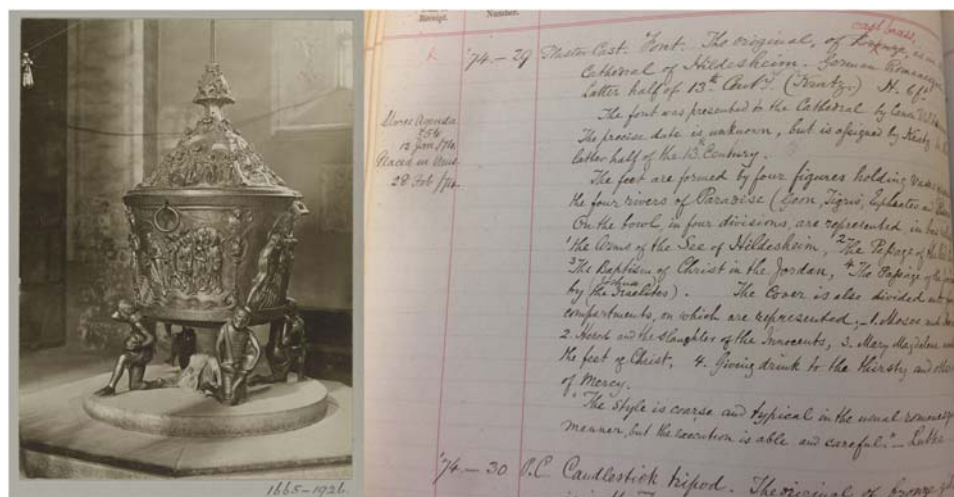 1665-1926
Receipt.
Number.
cast brass,
'74.-29 Plaster Cast. Font. The original, of is in
Cathedral of Hildesheim. German Romanesque
Latter half of 13th Cent.y. (Kratz.) H. 6f.
The font was presented to the Cathedral by Canon
The precise date is unknown, but is assigned by Kratz
latter half of the 13th Century.
Stores Agenda
754
12 Jan /74.
Placed in Mus.
28 Feb /74.
The feet are formed by four figures holding vases
the four rivers of Paradise (Geon, Tigris, Euphrates
On the bowl, in four divisions, are represented in
1 the Arms of the See of Hildesheim, 2 The Passage of the
3 The Baptism of Christ in the Jordan, 4 The Passage of the
by (the Israelites). The cover is also divided
Joshua
compartments, on which are represented;- 1. Moses
2. Herod and the Slaughter of the Innocents, 3. Mary Magdalene
the feet of Christ, 4. Giving drink to the thirsty and
of Mercy.
"The style is coarse and typical in the usual romanesque
manner, but the execution is able and careful." - Lubke
'74.-30 P.C. Candlestick tripod. The original of bronze